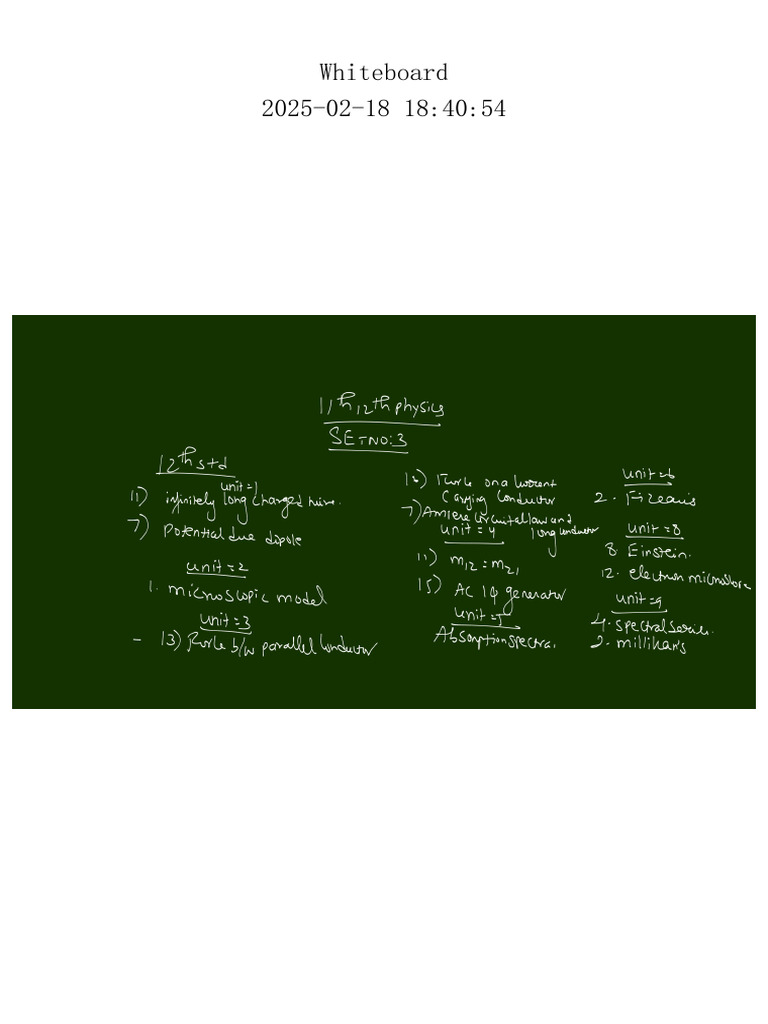 Whiteboard
2025-02-18 18:40:54
11th 12th physics
SET NO:3
12th std
unit=1
11) infinitely long charged wire.
7) Potential due dipole
unit=2
1. microscopic model
unit=3
- 13) Force b/w parallel conductor
16) Force on a current
Carrying Conductor
7) Ampere circuital law and
long conductor
unit=4
11) M12=M21
15) AC 1φ generator
unit=5
Absorption spectra.
unit=6
2. Fizeau's
unit=8
8. Einstein.
12. electron
unit=9
4. spectral series.
2. millikan's